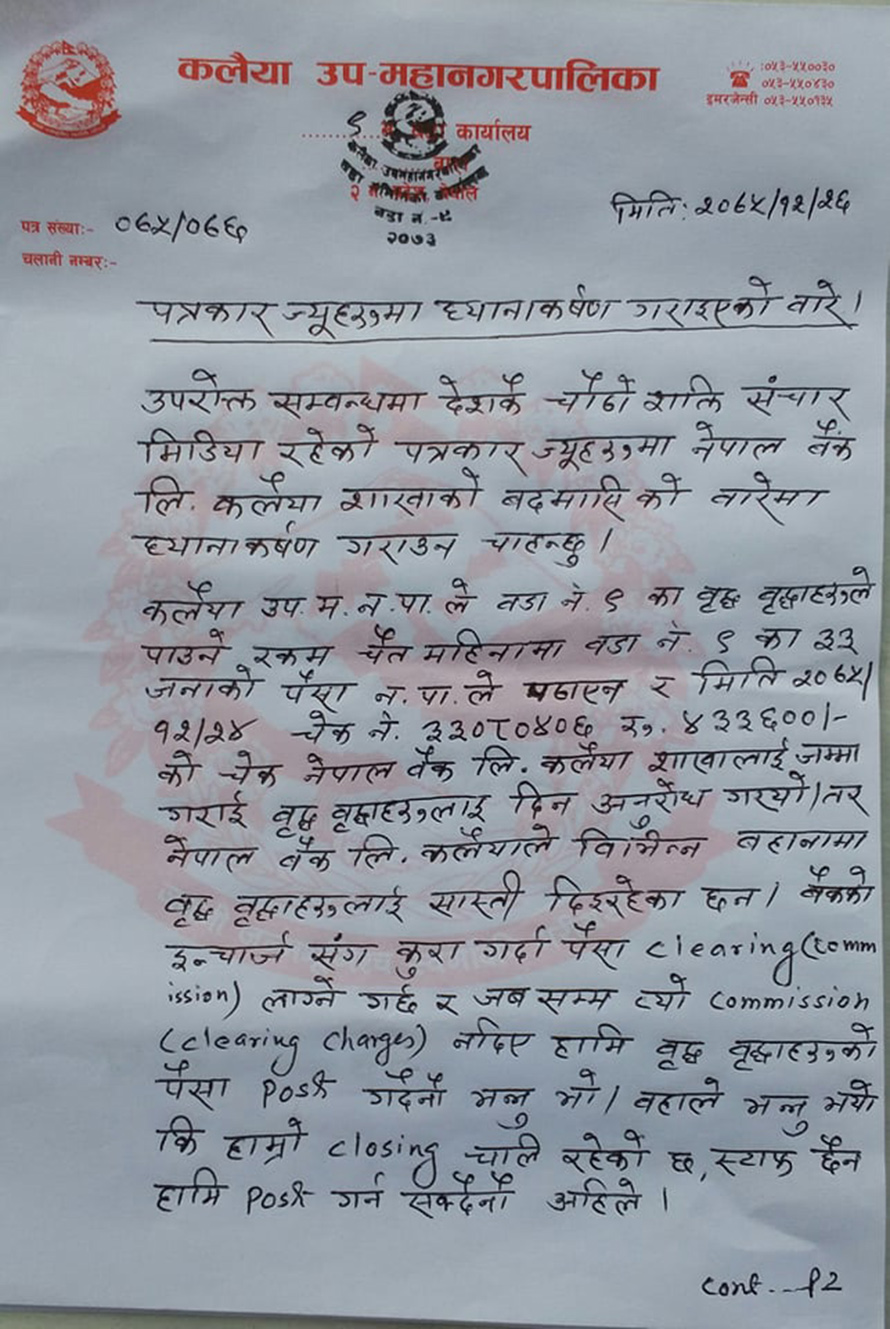 कलैया उप-महानगरपालिका
:०५३-५५००३०
०५३-५५०४३०
इमरजेन्सी ०५३-५५०१३५
९ कार्यालय
वडा नं.-९
२०७३
मिति: २०७५/१२/२६
पत्र संख्या:- ०७५/०७६
चलानी नम्बर:-
पत्रकार ज्यूहरुमा ध्यानाकर्षण गराइएको बारे।
उपरोक्त सम्बन्धमा देशकै चौठो शक्ति संचार
मिडिया रहेको पत्रकार ज्यूहरुमा नेपाल बैंक
लि. कलैया शाखाको बदमासि को बारेमा
ध्यानाकर्षण गराउन चाहन्छु।
कलैया उप.म.न.पा.ले वडा नं. ९ का वृद्ध वृद्धाहरुले
पाउने रकम चैत महिनामा वडा नं. ९ का ३३
जनाको पैसा न.पा.ले पठाएन र मिति २०७५/
१२/२४ चेक नं. ३३०८०४०६ रु. ४३३६००/-
को चेक नेपाल बैंक लि. कलैया शाखालाई जम्मा
गराई वृद्ध वृद्धाहरुलाइ दिन अनुरोध गरयो। तर
नेपाल बैंक लि. कलैयाले विभिन्न बहानामा
वृद्ध वृद्धाहरुलाई सास्ती दिइरहेका छन। बैंकको
इन्चार्ज संग कुरा गर्दा पैसा clearing (comm
ission) लाग्ने गर्छ र जब सम्म त्यो commission
(clearing charges) नदिए हामि वृद्ध वृद्धाहरुको
पैसा Post गर्दैनौ भन्नु भो। वहाले भन्नु भयो
कि हाम्रो closing चालि रहेको छ, स्टाफ छैन
हामि Post गर्न सक्दैनौ अहिले।
cont...P2